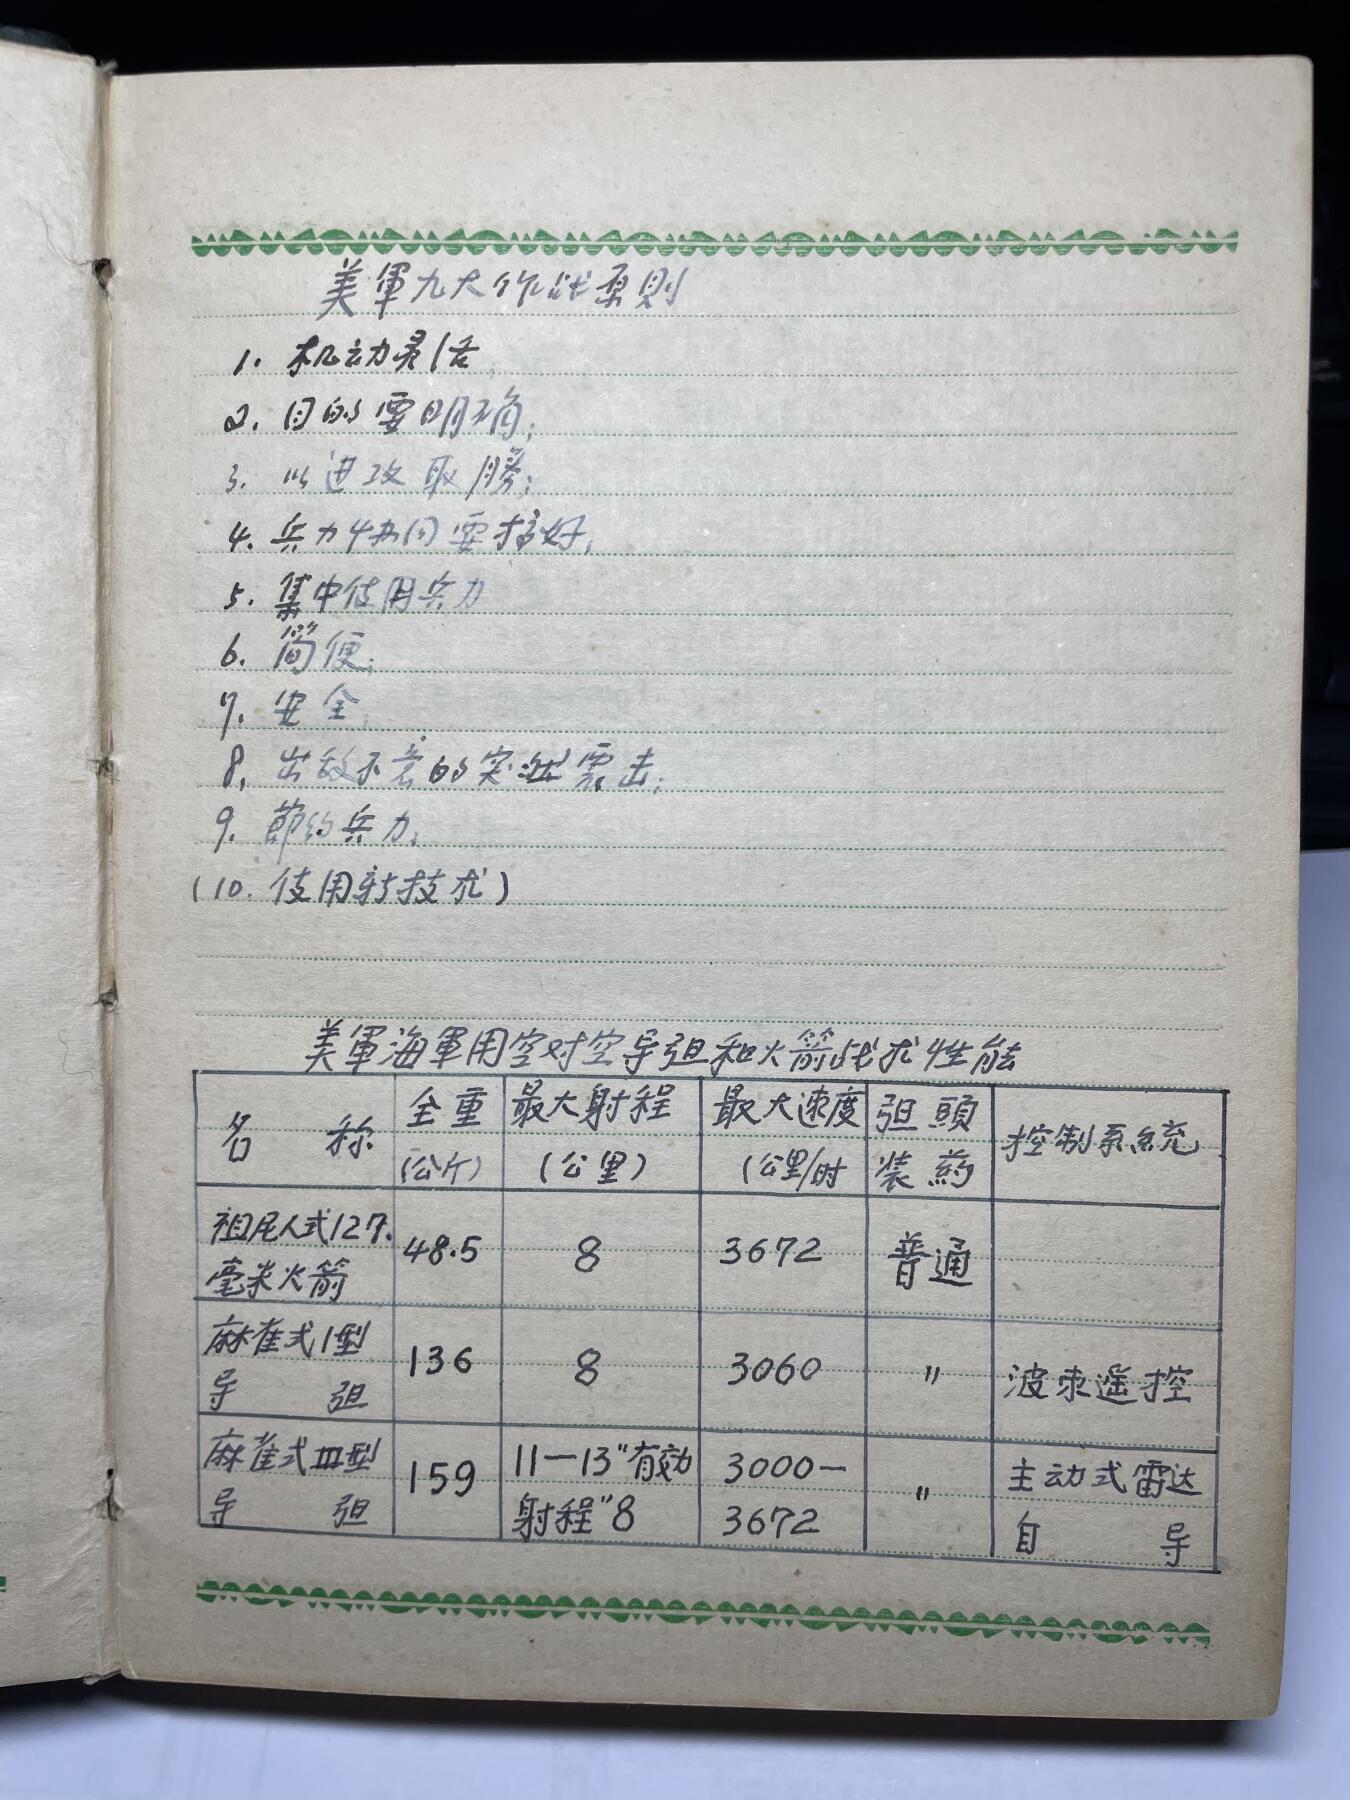 美軍九大作战原則
1. 机动灵活
2. 目的要明确;
3. 以进攻取勝;
4. 兵力协同要搞好,
5. 集中使用兵力
6. 简便;
7. 安全
8. 出敌不意的突然震击;
9. 節约兵力,
(10. 使用新技术)
美軍海軍用空对空导弹和火箭战术性能
名 称 全重 (公斤) 最大射程 (公里) 最大速度 (公里/时 弹頭 装药 控制系統
祖尼人式127. 毫米火箭 48.5 8 3672 普通
麻雀式1型 导弹 136 8 3060 〃 波束遥控
麻雀式III型 导弹 159 11—13"有効 射程"8 3000— 3672 〃 主动式雷达 自导